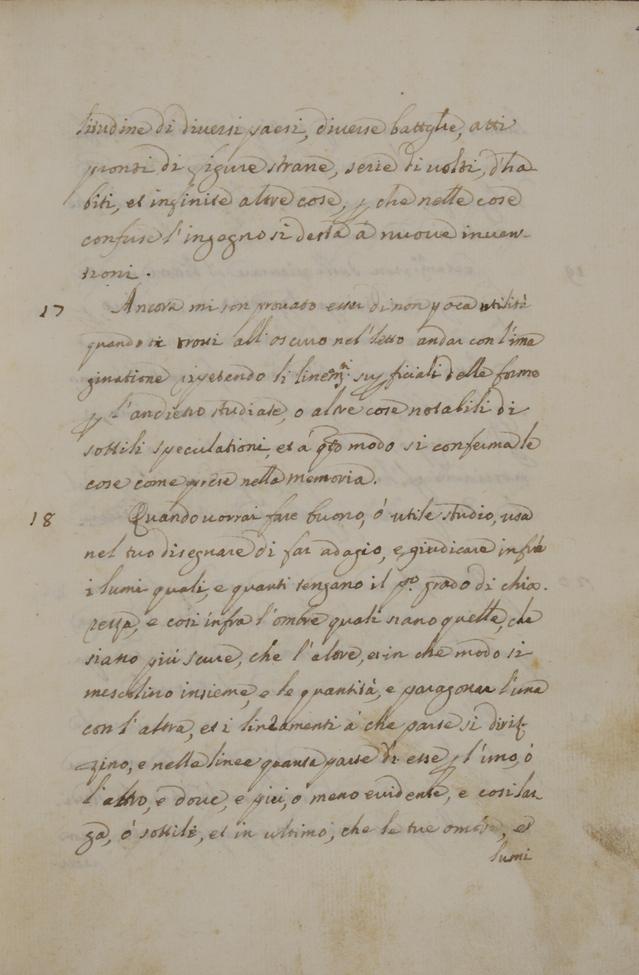 litudine di diversi paesi, diverse battglie, atti
pronti di figure strane, serie di volti, d'ha
biti, et infinite altre cose, p che nelle cose
confuse l'ingegno si desta à nuove inven-
tioni.
17 Ancora mi son provato esser di non poca utilità
quando ti trovi all'oscuro nel letto andar con l'ima
ginatione ripetendo li linem.ti supficiali delle forme
p l'andietro studiate, o altre cose notabili di
sottili speculationi, et à qto modo si conferma le
cose come prese nella memoria.
18 Quando vorrai fare buono, ò utile studio, usa
nel tuo disegnare di far adagio, e giudicare infra
i lumi quali, e quanti tengano il po. grado di chia.
rezza, e così infra l'ombre quali siano quelle, che
siano più scure, che l'altre, et in che modo si
mescolino insieme, e le quantità, e paragonar l'una
con l'altra, et i lineamenti à che parte si diriz
zino, e nelle linee quanta parte di esse p l'uno, ò
l'altro, e dove, e più, ò meno evidente, e così lar
ga, ò sottile, et in ultimo, che le tue ombre, et
lumi